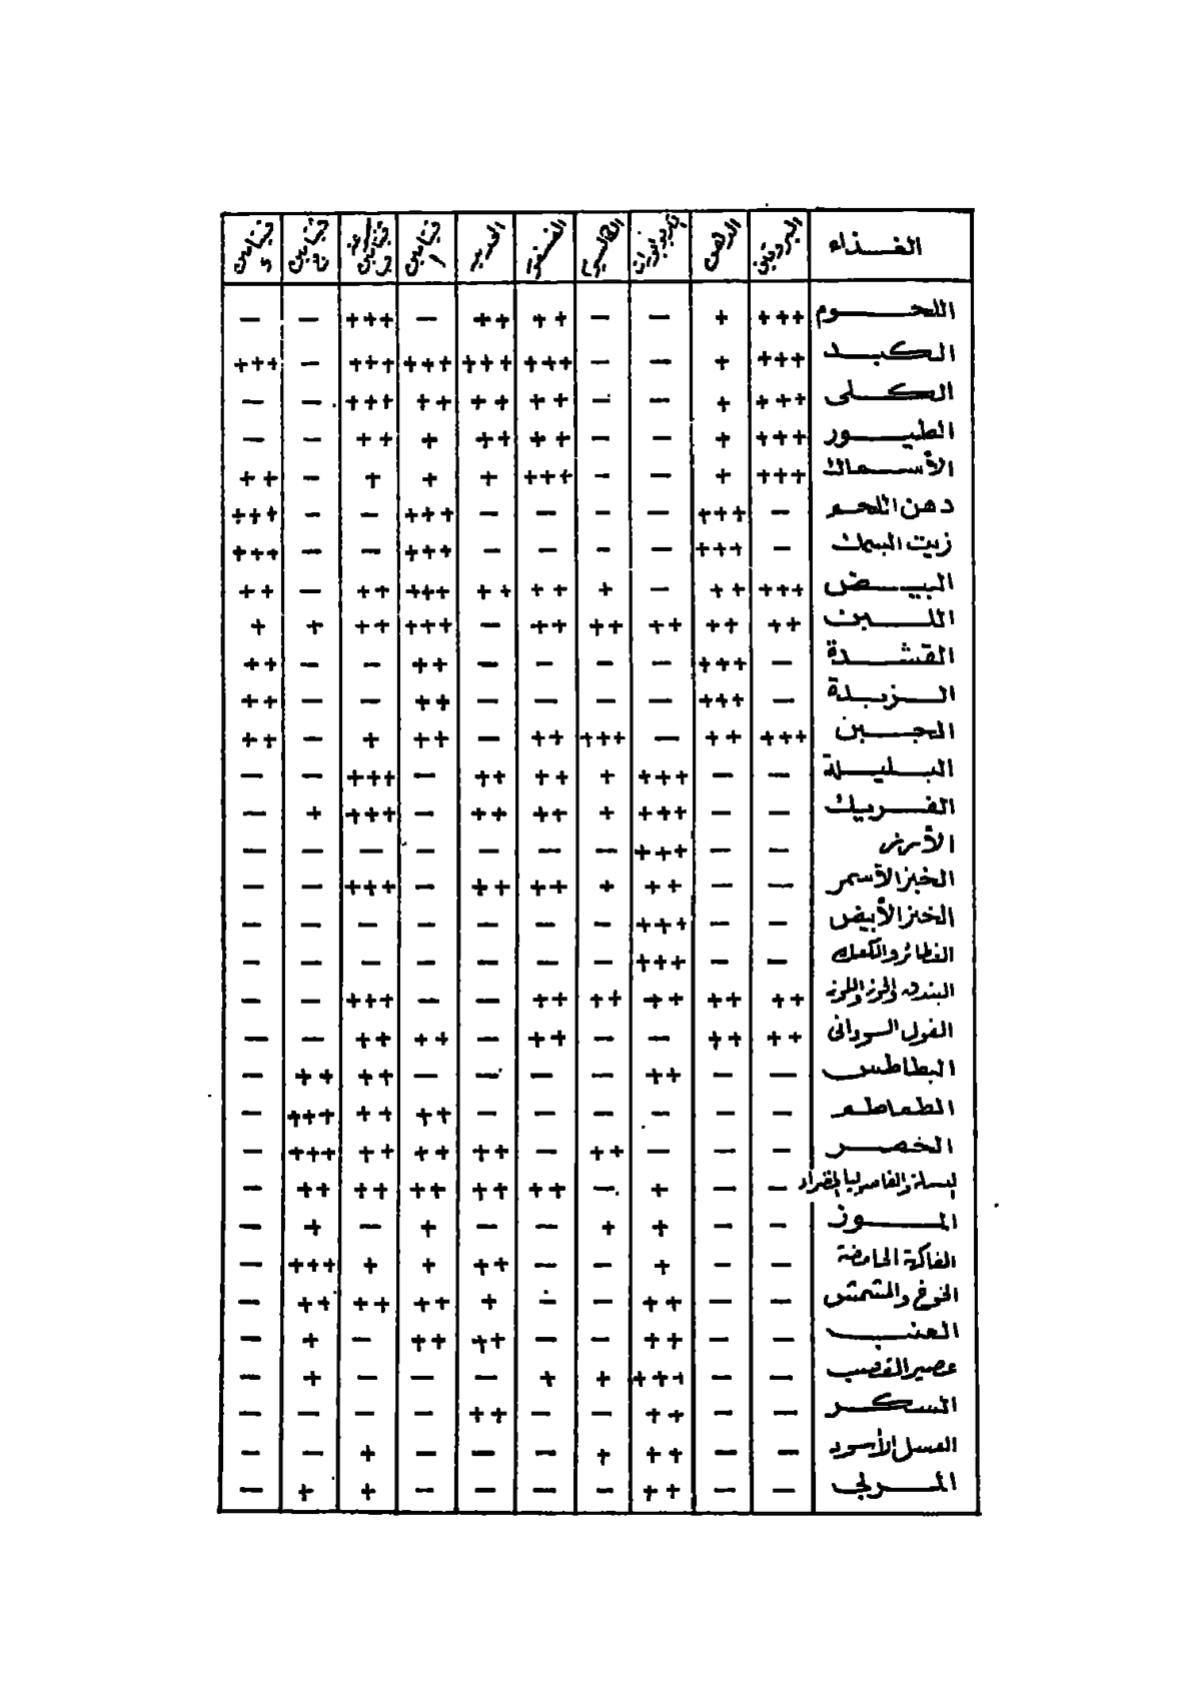 الغــذاء البروتين الدهن الكربوايدرات الكالسيوم الفسفور الحديد فيتامين أ مجموعة فيتامين ب فيتامين ج فيتامين د
اللحــوم +++ + — — ++ ++ — +++ — —
الكبــد +++ + — — +++ +++ +++ +++ — +++
الكــلى +++ + — — ++ ++ ++ +++ — —
الطيــور +++ + — — ++ ++ + ++ — —
الأســماك +++ + — — +++ + + + — ++
دهن اللحم — +++ — — — — +++ — — +++
زيت السمك — +++ — — — — +++ — — +++
البيــض +++ ++ — + ++ ++ +++ ++ — ++
اللــبن ++ ++ ++ ++ ++ — +++ ++ + +
القشــدة — +++ — — — — ++ — — ++
الــزبــدة — +++ — — — — ++ — — ++
الجــبن +++ ++ — +++ ++ — ++ + — ++
البــليــلة — — +++ + ++ ++ — +++ — —
الفــريك — — +++ + ++ ++ — +++ + —
الأرز — — +++ — — — — — — —
الخبز الأسمر — — ++ + ++ ++ — +++ — —
الخبز الأبيض — — +++ — — — — — — —
الفطائر والكعك — — +++ — — — — — — —
البندق والجوز واللوز ++ ++ ++ ++ ++ — — +++ — —
الفول السودانى ++ ++ — — ++ — ++ ++ — —
البطاطس — — ++ — — — — ++ ++ —
الطماطم — — — — — — ++ ++ +++ —
الخضــر — — — ++ — ++ ++ ++ +++ —
البسلة والفاصوليا الخضراء — — + — ++ ++ ++ ++ ++ —
المــوز — — + + — — + — + —
الفاكهة الحامضة — — + — — ++ + + +++ —
الخوخ والمشمش — — ++ — — + ++ ++ ++ —
العنــب — — ++ — — ++ ++ — + —
عصير القصب — — +++ + + — — — + —
السكــر — — ++ — — ++ — — — —
العسل الأسود — — ++ + — — — + — —
المــربى — — ++ — — — — + + —